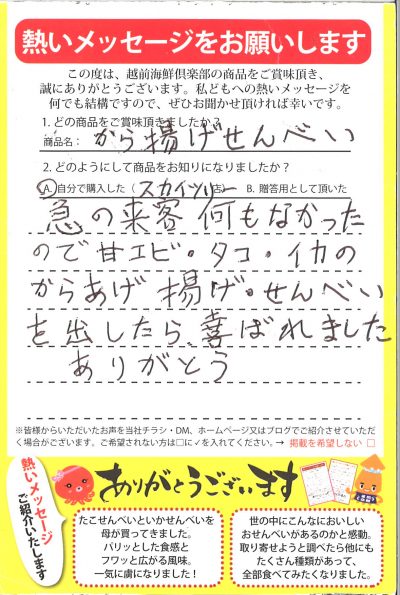 熱いメッセージをお願いします
この度は、越前海鮮倶楽部の商品をご賞味頂き、
誠にありがとうございます。私どもへの熱いメッセージを
何でも結構ですので、ぜひお聞かせ頂ければ幸いです。
1. どの商品をご賞味頂きましたか？
商品名： から揚げせんべい
2. どのようにして商品をお知りになりましたか？
A. 自分で購入した（ スカイツリー 店） B. 贈答用として頂いた
急の来客 何もなかった
ので甘エビ・タコ・イカの
からあげ 揚げ・せんべい
を出したら、喜ばれました
ありがとう
※皆様からいただいたお声を当社チラシ・DM、ホームページ又はブログでご紹介させていただ
く場合がございます。ご希望されない方は□に✓を入れてください。→ 掲載を希望しない □
熱いメッセージ
ご紹介いたします
ありがとうございます
たこせんべいといかせんべいを
母が買ってきました。
パリッとした食感と
フワッと広がる風味。
一気に虜になりました！
世の中にこんなにおいしい
おせんべいがあるのかと感動。
取り寄せようと調べたら他にも
たくさん種類があって、
全部食べてみたくなりました。